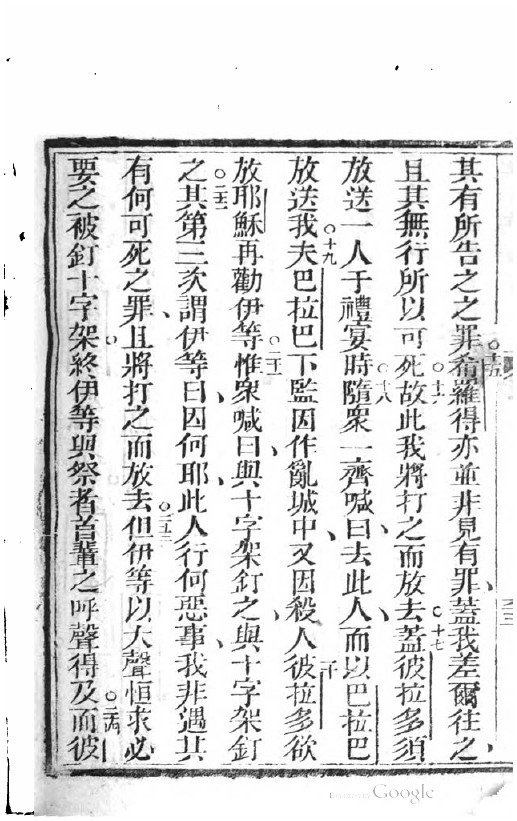 其有所告之之罪希羅得亦並非見有罪蓋我差爾往之
且其無行所以可死故此我將打之而放去蓋彼拉多須
放送一人于禮宴時隨衆一齊喊曰去此人而以巴拉巴
放送我夫巴拉巴下監因作亂城中又因殺人彼拉多欲
放耶穌再勸伊等惟衆喊曰與十字架釘之與十字架釘
之其第三次謂伊等曰因何耶此人行何惡事我非遇其
有何可死之罪且將打之而放去但伊等以大聲恒求必
要之被釘十字架終伊等與祭者首輩之呼聲得及而彼
十五
十六
十七
十八
十九
二十
二十一
二十二
二十三
二十四
Digitized by Google